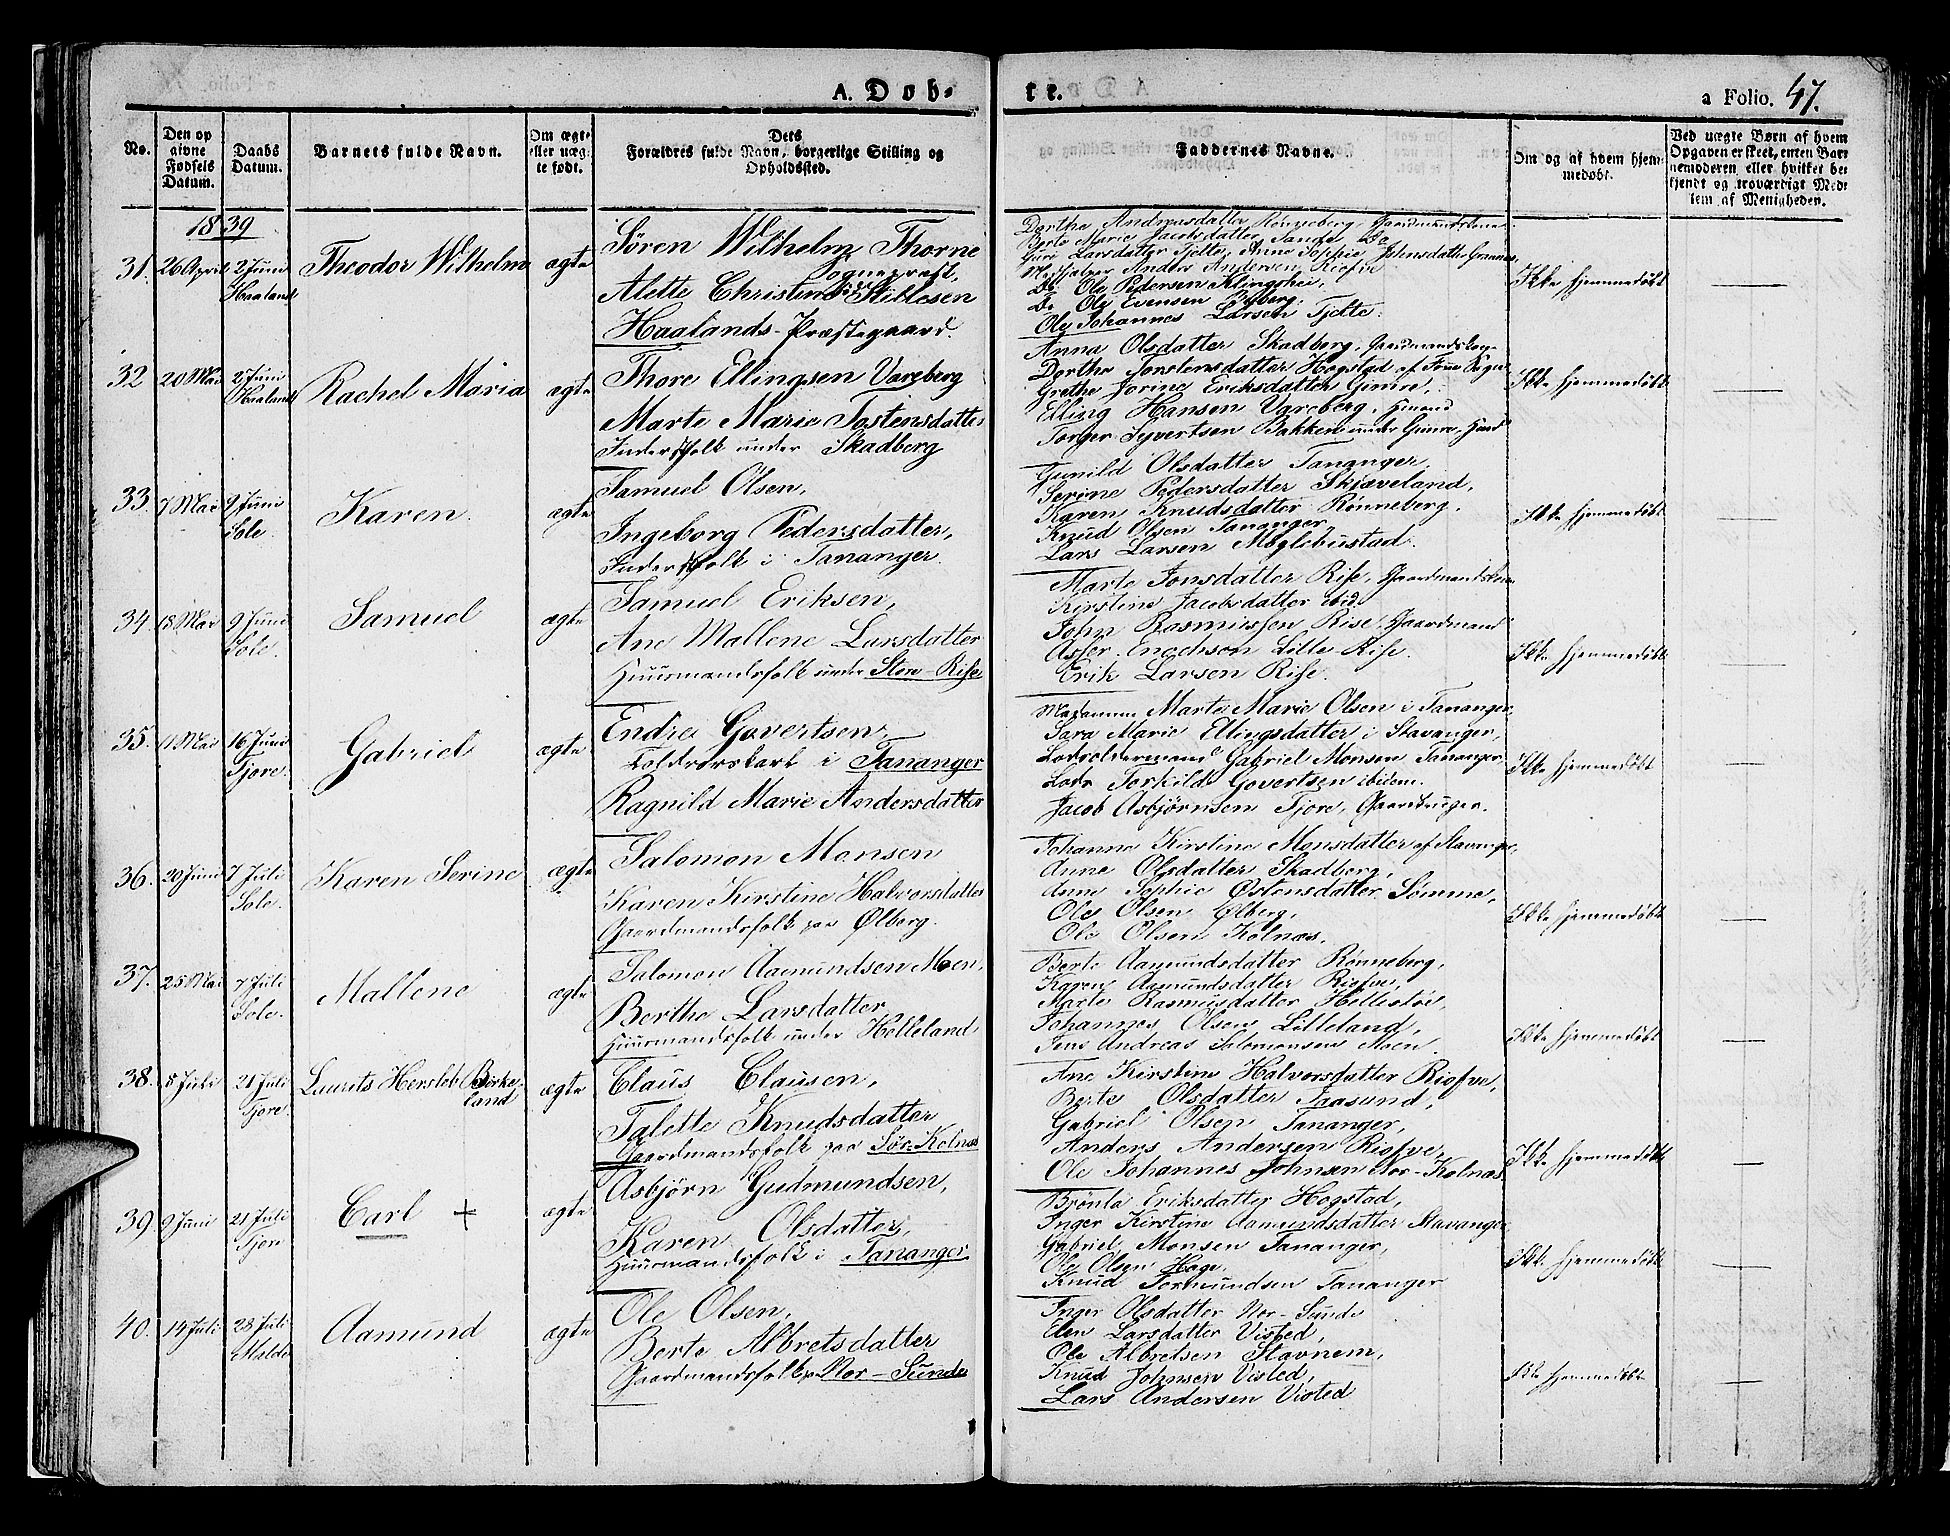 A. Døb-
te.
a Folio. 47.
No.
Den op
givne
Fødsels
Datum.
Daabs
Datum.
Barnets fulde Navn.
Om ægte
eller uæg-
te født.
Dets
Forældres fulde Navn, borgerlige Stilling og
Opholdssted.
Faddernes Navne.
Om og af hvem hjem-
medøbt.
Ved uægte Børn af hvem
Opgaven er skeet, enten Bar-
nemoderen eller hvilket be-
kjendt og troværdigt Med-
lem af Menigheden.
1839
31. 26 April 2 Juni Haaland Theodor Wilhelm ægte
Søren Wilhelm Thorne
Sognepræst,
Alette Christine Sittesen
Haalands-Præstegaard.
Dorthe Andreasdatter Rønneberg, Gaardmandskone
Berte Marie Jacobsdatter Tange Do
Guro Larsdatter Tjelte, Anne Sophie Johnsdatter Grannes,
Medhjelper Anders Andersen Riofve
Do Ole Pedersen Klingshei,
Do Ole EvensenØlberg.
Ole Johannes Larsen Tjelte.
Ikke hjemmedøbt
32 20 Mai 2 Juni Haaland Rachel Maria ægte
Thore Ellingsen Vareberg
Marte Marie Tostensdatter
Inderstfolk under Skadberg
Anna Olsdatter Skadberg, Gaardmandskone
Dorthe Tostensdatter Hogstad af Some Sogn
Grethe Jorine Eriksdatter Gimre,
Elling Hansen Vareberg,
Torger Syvertsen Bakken under Gimre,
Ikke hjemmedøbt
33. 7 Mai 9 Juni Sole. Karen. ægte
Samuel Olsen,
Ingeborg Pedersdatter,
Inderstfolk i Tananger.
Gunild Olsdatter Tananger,
Serine Pedersdatter Skiæveland,
Karen Knudsdatter Rønneberg,
Knud Olsen Tananger,
Lars Larsen Møglebustad.
Ikke hjemmedøbt
34. 18 Mai 9 Juni Sole. Samuel ægte
Samuel Eriksen,
Ane Mallene Larsdatter
Huusmandsfolk under Store-Rise
Marte Jonsdatter Rise, Gaardmandskone
Kirstine Jacobsdatter ibid.
John Rasmussen Rise Gaardmand
Asser Enochson Litle Rise.
Erik Larsen Rise.
Ikke hjemmedøbt
35. 11 Mai 16 Juni Tjore. Gabriel ægte
Endre Govertsen,
Toldrorskarl i Tananger
Ragnild Marie Andersdatter
Madamme Marte Marie Olsen i Tananger,
Sara Marie Ellingsdatter i Stavanger,
Lodsoldermand Gabriel Monsen Tananger,
Lods Torkild Govertsen ibidem.
Jacob Asbjørnsen Tjore, Gaardbruger.
Ikke hjemmedøbt
36. 20 Juni 7 Juli Sole. Karen Serine ægte
Salomon Monsen
Karen Kirstine Halvorsdatter
Gaardmandsfolk paa Ølberg.
Johanna Kirstine Monsdatter af Stavanger,
Anne Olsdatter Skadberg,
Anne Sophie Østensdatter Sømme,
Ole Olsen Ølberg,
Ole Olsen Kolnæs.
Ikke hjemmedøbt
37. 25 Mai 7 Juli Sole. Mallene ægte
Salomon Aamundsen Moen,
Berthe Larsdatter
Huusmandsfolk under Helleland
Berte Aamundsdatter Rønneberg,
Karen Aamundsdatter Riofve,
Marte Rasmusdatter Hellestøe,
Johannes Olsen Lilleland,
Jens Andreas Salomonsen Moen
Ikke hjemmedøbt
38. 8 Juli 21 Juli Tjore. Laurits Hersleb Birke-
land ægte
Claus Clausen,
Talette Knudsdatter
Gaardmandsfolk paa Sør-Kolnæs
Ane Kirstine Halvorsdatter Riofve,
Berte Olsdatter Taasund,
Gabriel Olsen Tananger,
Anders Andersen Riofve,
Ole Johannes Johnsen Nor-Kolnæs
Ikke hjemmedøbt
39 9 Juni 21 Juli Tjore Carl + ægte
Asbjørn Gudmundsen,
Karen Olsdatter,
Huusmandsfolk i Tananger
Brønla Eriksdatter Hogstad,
Inger Kirstine Aamundsdatter Stavanger
Gabriel Monsen Tananger,
Ole Olsen Haga,
Knud Tormundsen Tananger
Ikke hjemmedøbt
40. 14 Juli 28 Juli Malde Aamund ægte
Ole Olsen,
Berte Albretsdatter
Gaardmandsfolk paa Nor-Sunde
Inger Olsdatter Nor-Sunde
Elen Larsdatter Visted,
Ole Albretsen Stavnem,
Knud Johnsen Visted,
Lars Andersen Visted
Ikke hjemmedøbt